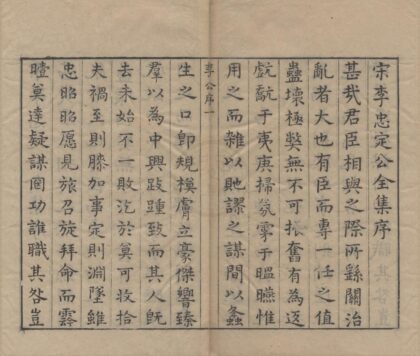 宋李忠定公全集序
甚哉君臣相與之際所繇關治
亂者大也有臣而專一任之值
蠱壞極獘無不可振奮有為迓
虓於夷庚掃氛雺于㬈曣惟
用之而雜以貤謬之謀間以螽
李公序一
生之口卽規模膚立豪傑響臻
羣以為中興跂踵致而其人旣
去未始不一敗汔於莫可收拾
夫禍至則膝加事定則淵墜雖
忠昭昭愿見旅召旋拜命而霧
曀奠達疑謀罔功誰職其咎豈